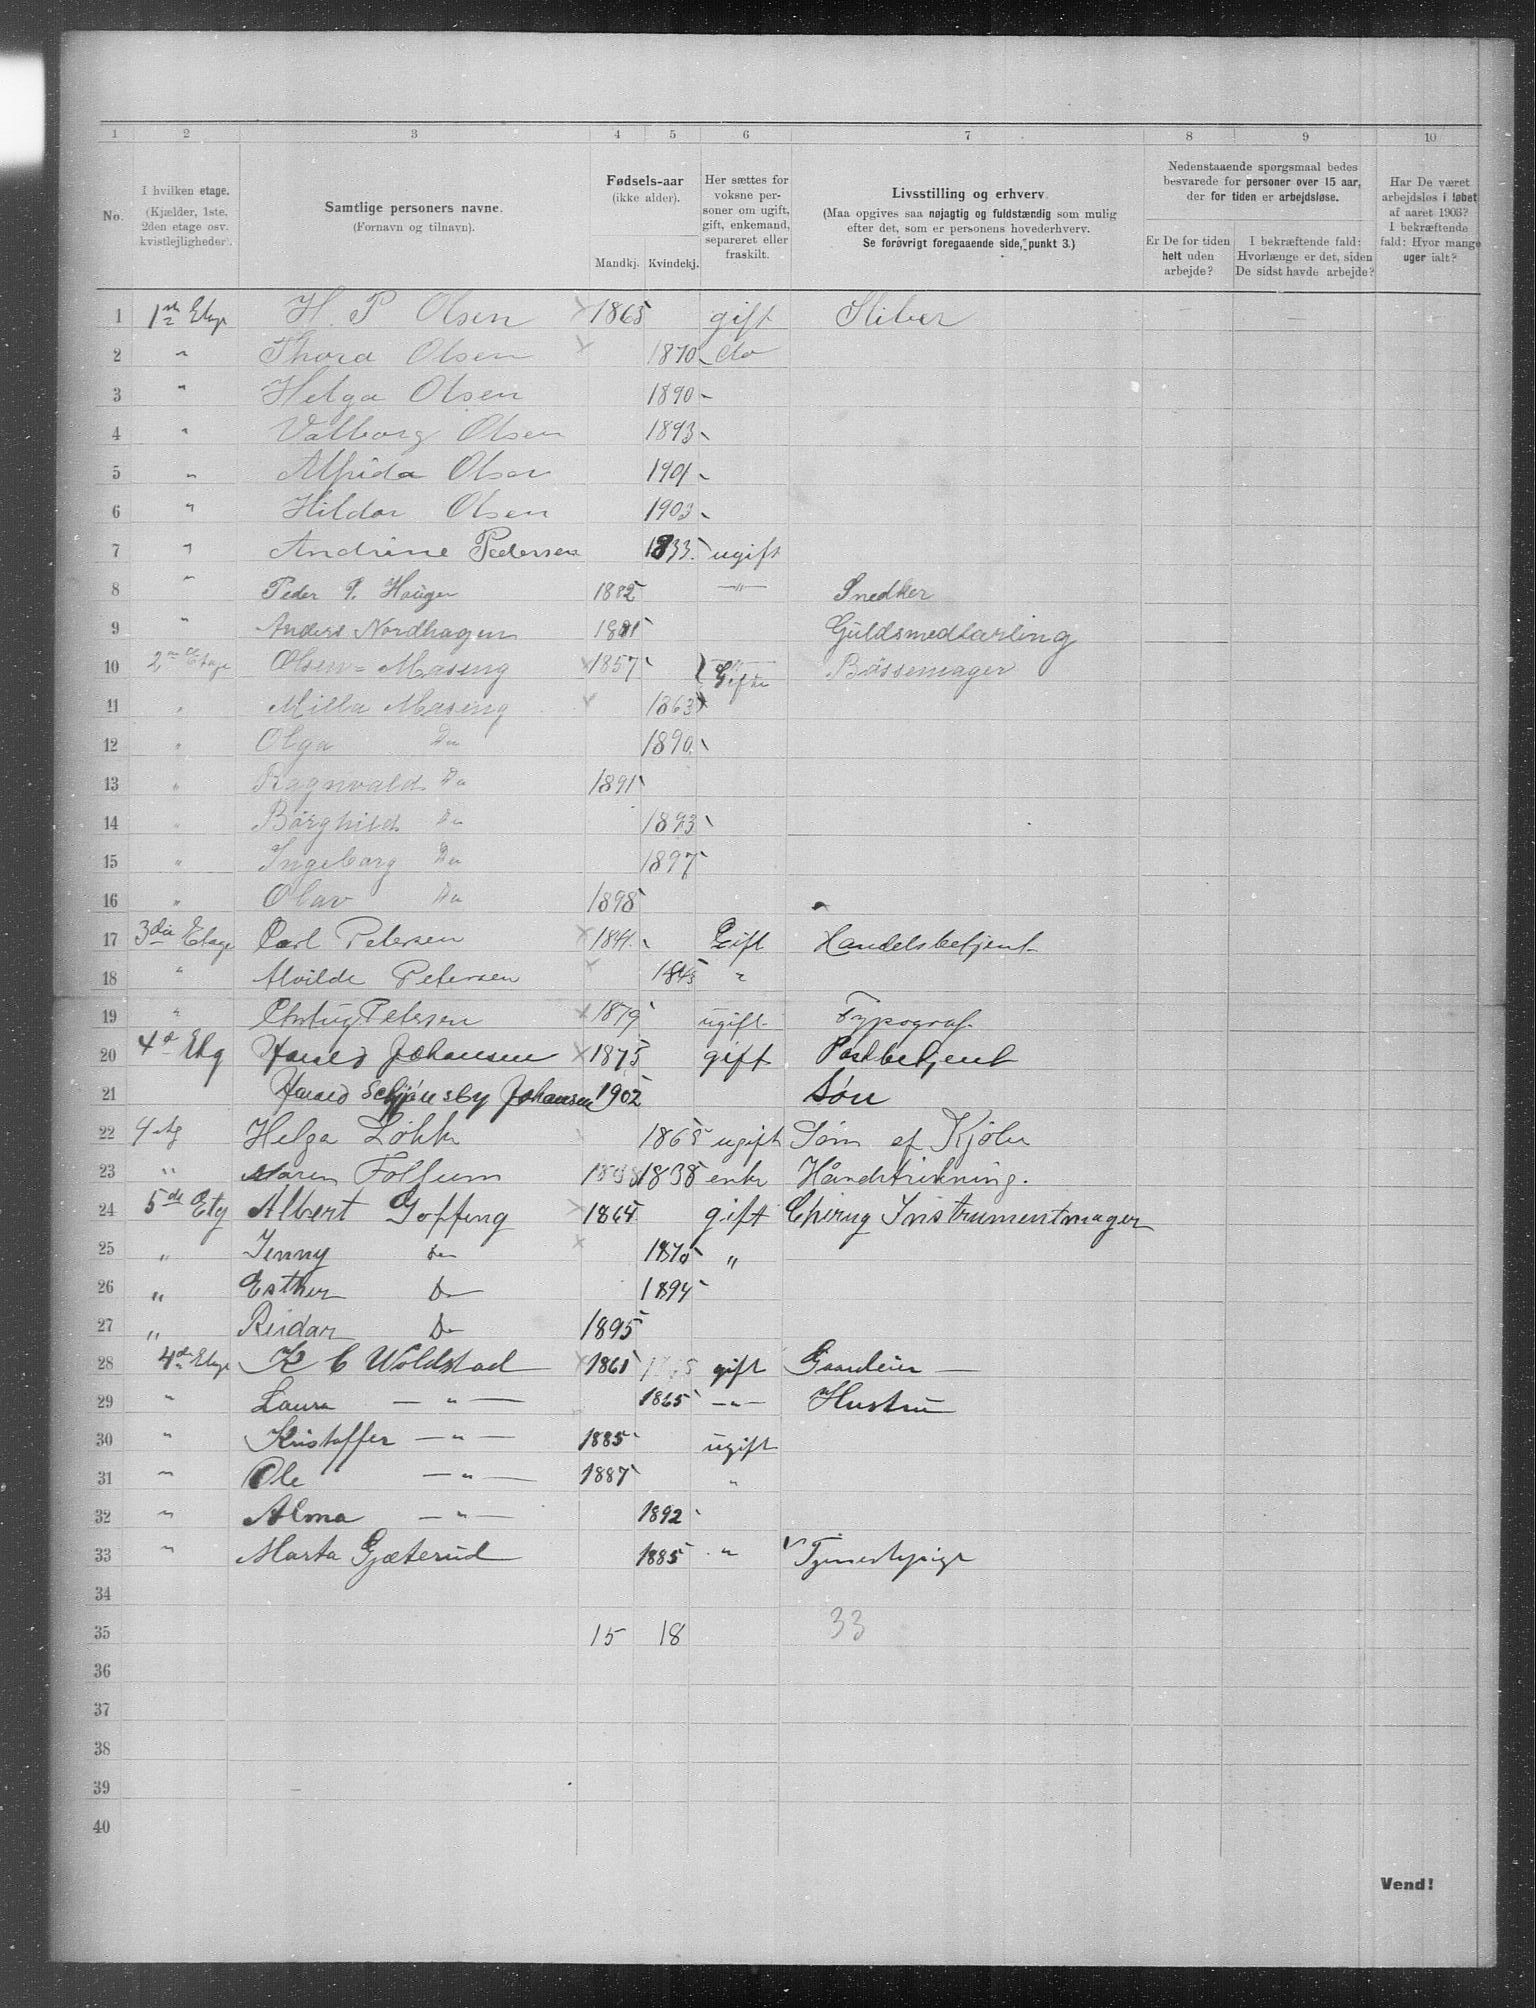 1 2 3 4 5 6 7 8 9 10
No.
I hvilken etage.
(Kjælder, 1ste, 2den etage osv. kvistlejligheder).
Samtlige personers navne.
(Fornavn og tilnavn).
Fødsels-aar
(ikke alder).
Mandkj. Kvindekj.
Her sættes for voksne personer om ugift, gift, enkemand, separeret eller fraskilt.
Livsstilling og erhverv.
(Maa opgives saa nøjagtig og fuldstændig som mulig efter det, som er personens hovederhverv. Se forøvrigt foregaaende side, punkt 3.)
Nedenstaaende spørgsmaal bedes besvarede for personer over 15 aar, der for tiden er arbejdsløse.
Er De for tiden helt uden arbejde?
I bekræftende fald: Hvorlænge er det, siden De sidst havde arbejde?
Har De været arbejdsløs i løbet af aaret 1903? I bekræftende fald: Hvor mange uger ialt?
1 1ste Etage H. P Olsen 1865 gift Sliber
2 " Thora Olsen 1870 do
3 " Helga Olsen 1890
4 " Valborg Olsen 1893
5 " Alfrida Olsen 1901
6 " Hildar Olsen 1903
7 " Andrine Pedersen 1833 ugift
8 " Peder P. Hauger 1882 —"— Snedker
9 " Anders Nordhagen 1881 Guldsmedlærling
10 2n Etage Olsen-Maseng 1857 Gifte Bøssemager
11 " Milla Maseng 1863
12 " Olga Do 1890
13 " Ragnvald Do 1891
14 " Borghild Do 1893
15 " Ingeborg Do 1897
16 " Olav Do 1898
17 3die Etage Carl Petersen 1841 Gift Handelsbetjent
18 " Alvilde Petersen 1845 "
19 " Petersen 1879 ugift Typograf
20 4d Etg Harald Johansen 1875 gift Postbetjent
21 Harald Schjønsby Johansen 1902 Søn
22 4 etg Helga Løkke 1865 ugift Søm af Kjoler
23 " Maren Follum 1838 enke Håndstrikning.
24 5de Etg Albert Goffeng 1864 gift Chirug Instrumentmager
25 " Jenny Do 1870 "
26 " Esther Do 1894
27 " Reidar Do 1895
28 4de Etage K C Woldstad 1861 gift Gaardeier —
29 " Laura — " — 1865 —"— Hustru
30 " Kristoffer — " — 1885 ugift
31 " Ole — " — 1887 "
32 " Alma — " — 1892
33 " Marta Gjæterud 1885 " Tjenestepige
34
35 15 18 33
36
37
38
39
40
Vend!